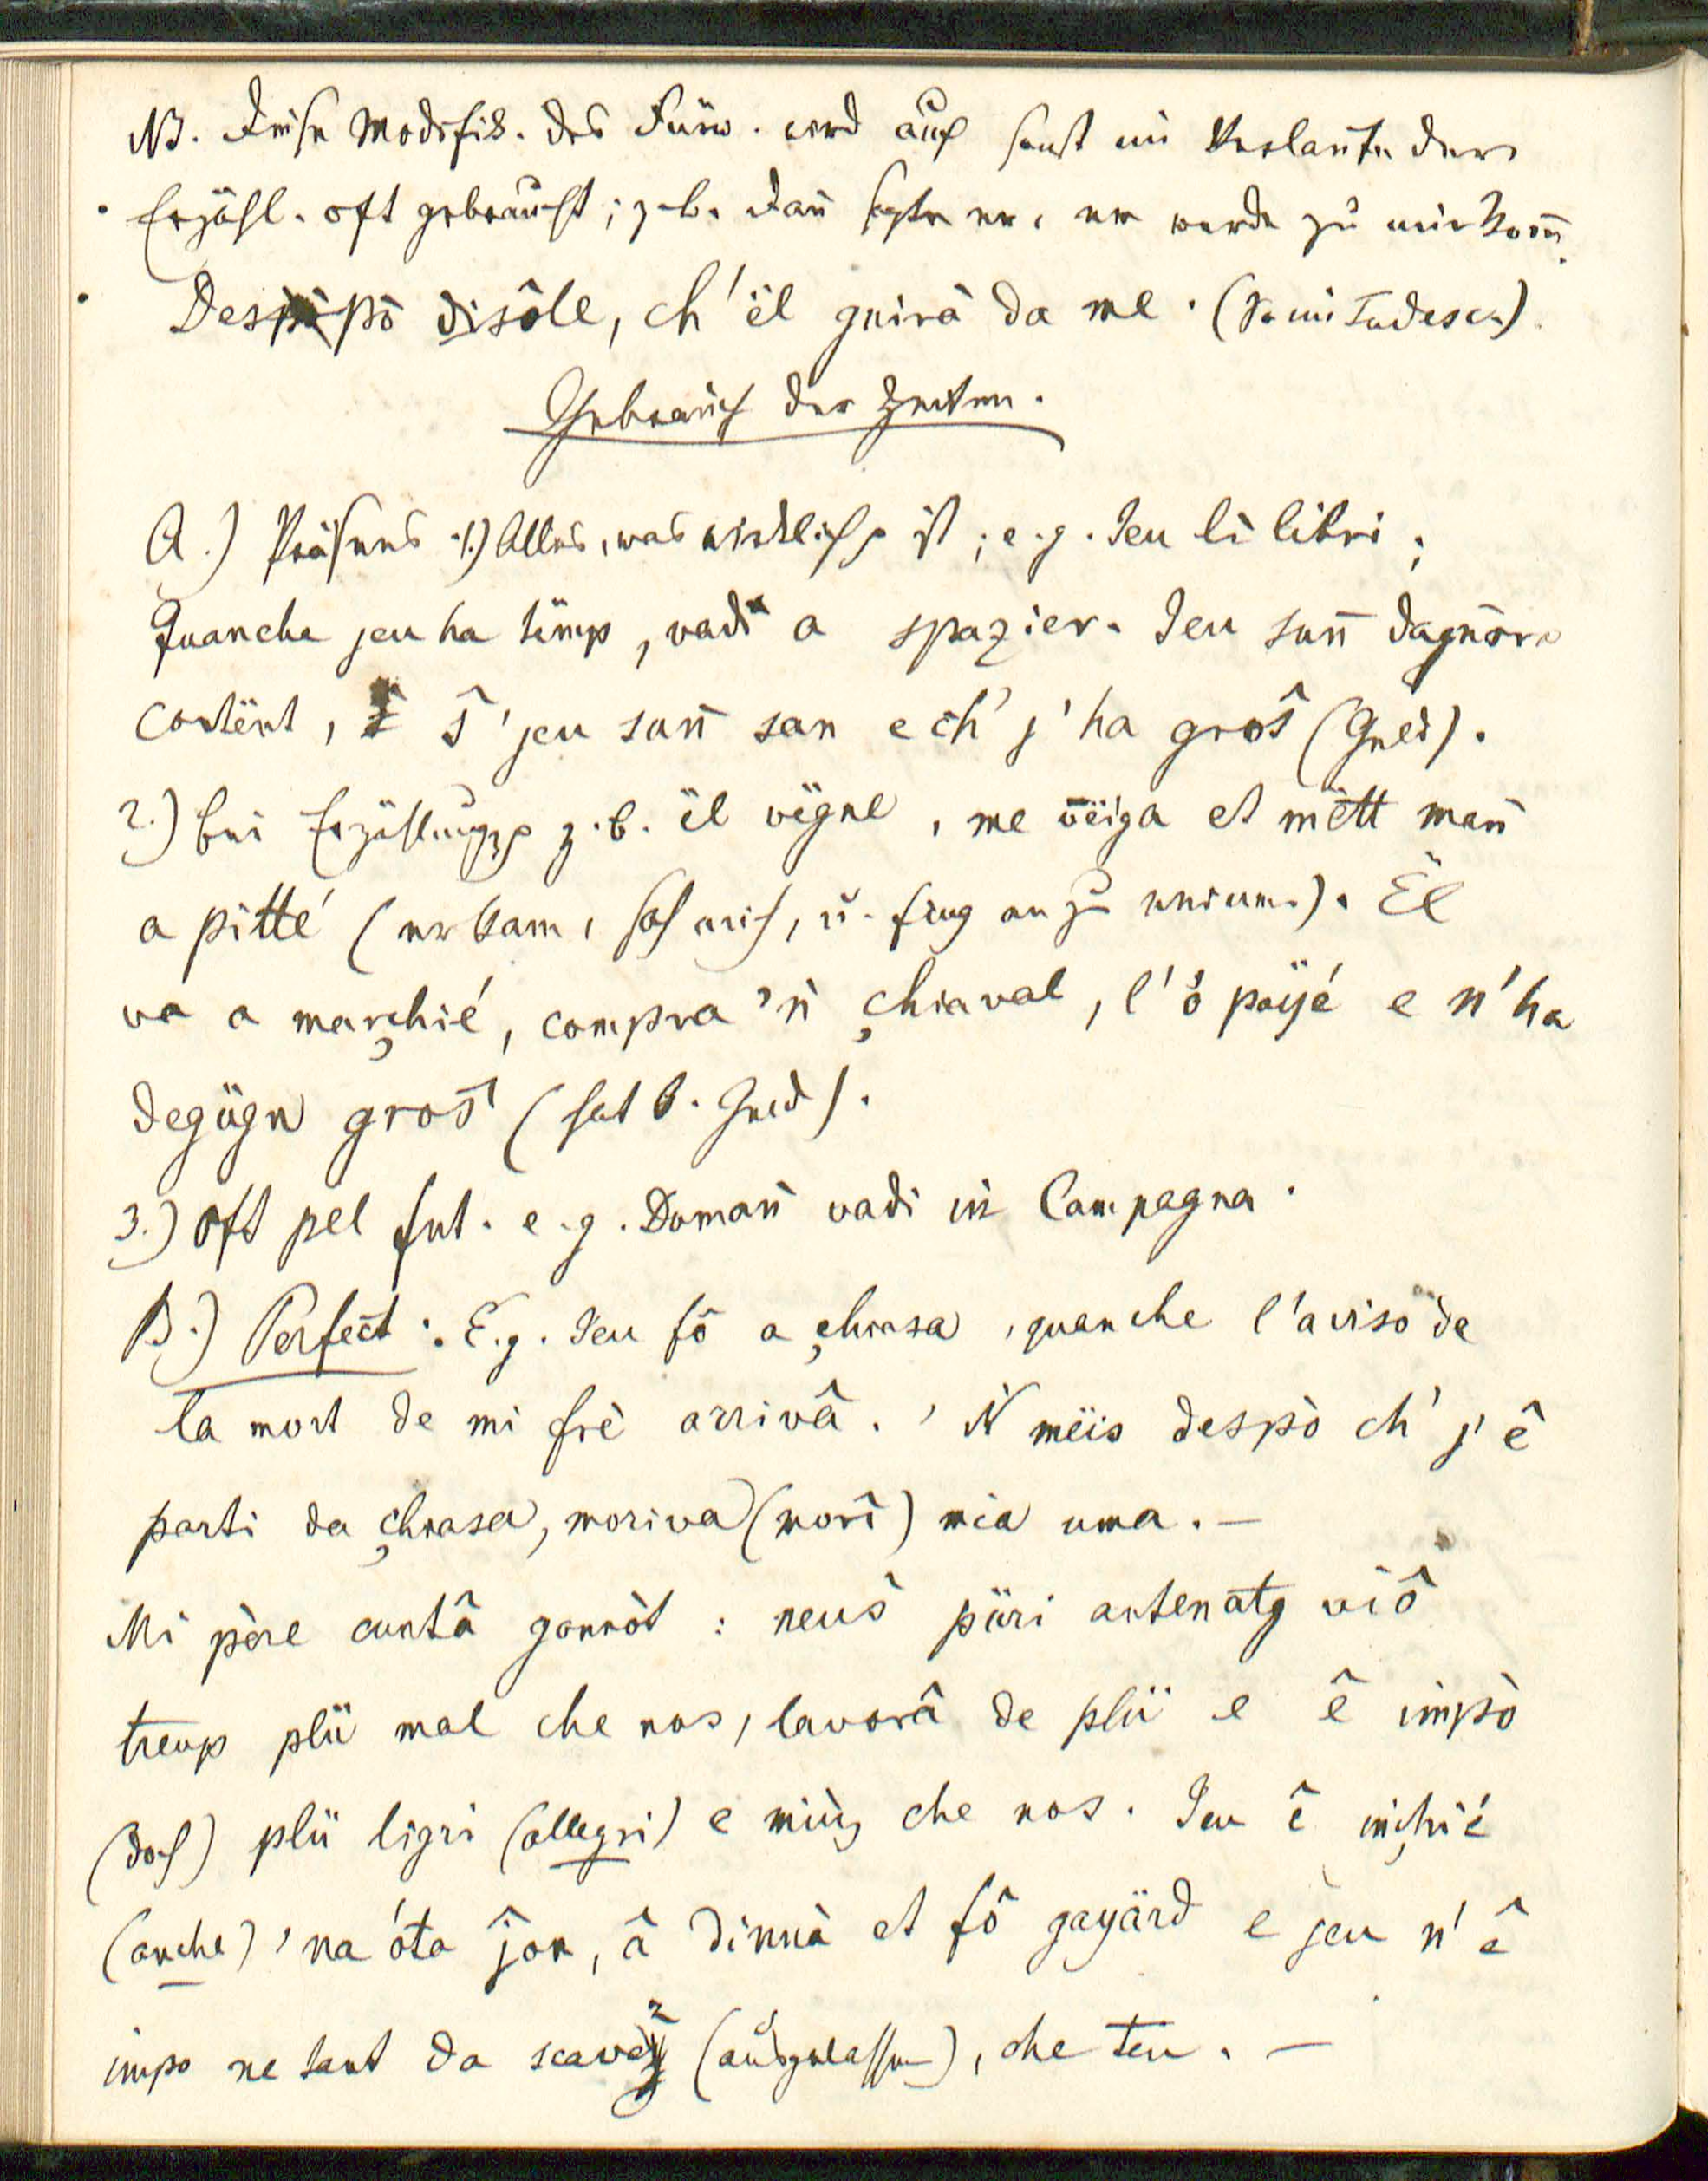 NB. Diese Modifik. des Fürw. wird auch sonst im Verlaufe der
Erzähl. oft gebraucht; z.b. dañ sagte er, er werde zu mir kom̄.
Despò disôle, ch'ël gnirà da me. (Tudesc.)
Gebrauch der Zeiten.
A.) Präsens 1.) Alles, was wirklich ist; e.g. Jeu li libri;
Quanche jeu ha tëmp, vadi a spazier. Jeu sun̄ dagnòra
contënt, ŝ'jeu sun̄ san e ch' j'ha groŝ (Geld).
2.) bei Erzählung z.b. ël vëgne, me vëiga et mëtt man̄
a pitté (er kam, sah mich, u. fing an zu weinen). Ël
va a marchié, compra 'n chiaval, l'ò païjé e n'ha
degügn groŝ (hat k. Geld).
3.) oft pel fut. e.g. Doman̄ vadi in Campagna.
B.) Perfect: E.g. Jeu fô a chiasa, quanche l'aviso de
la mort de mi frè arrivâ. 'N mëis despò ch' j'ê
parti da chiasa, moriva (morî) mia uma. —
Mi père cuntâ gonnòt: neuŝ päri antenatg viô
treup plü mal che nos, lavorâ de plü e ê impò
(doch) plü ligri (allegri) e miùg che nos. Jeu ê inchié
(anche) 'na óta ĵon, â dinnà et fô gayärd e jeu n'ê
impo ne tant da scavaz (ausgelassen), che teu. —